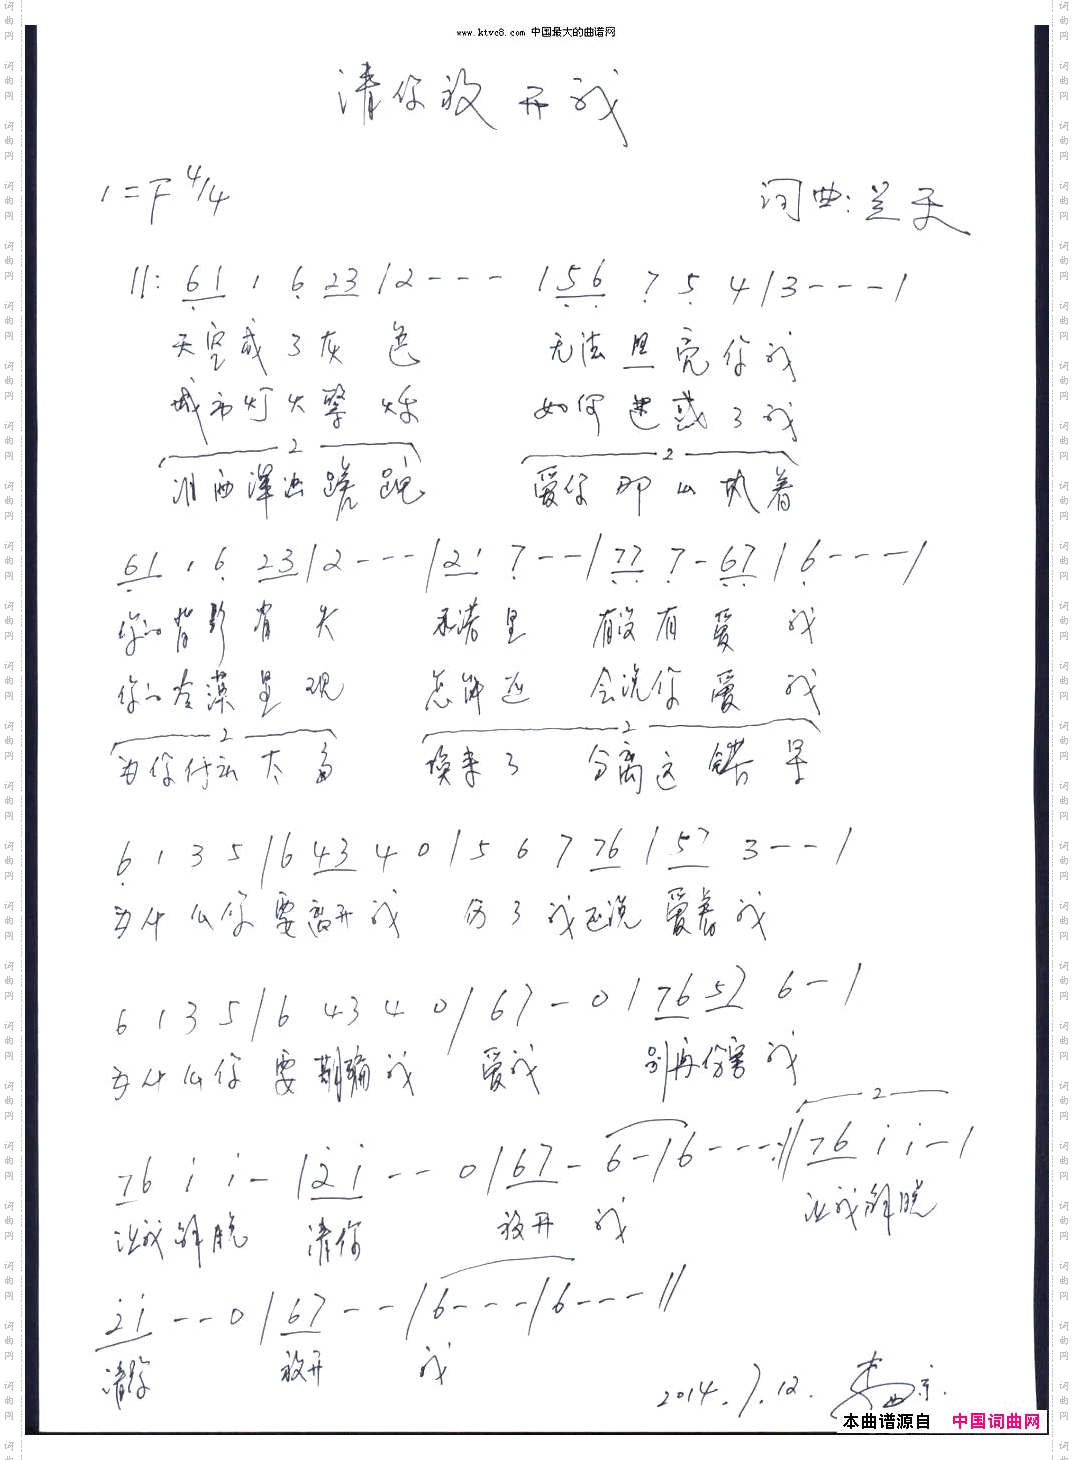 www.ktvc8.com 中国最大的曲谱网
请你放开我
1=F 4/4
词曲:兰天
||: 61 1 6 23 | 2 - - - | 56 7 5 4 | 3 - - - |
天空成了灰色 无法照亮你我
城市灯火擎烁 如何迷惑了我
2 2
泪洒浑浊蹉跎 爱你那么执着
61 1 6 23 | 2 - - - | 21 7 - - | 77 7 - 67 | 6 - - - |
你的背影消失 承诺里 有没有爱我
你的冷漠呈现 怎解近 会说你爱我
2 2
为你付出太多 换来了 分离这错果
6 1 3 5 | 6 43 4 0 | 5 6 7 76 | 57 3 - - |
为什么你要离开我 伤了我还说爱着我
6 1 3 5 | 6 43 4 0 | 67 - 0 | 76 57 6 - |
为什么你要欺骗我 爱我 别再伤害我
2
76 i i - | 2i - - 0 | 67 - 6 - | 6 - - - :|| 76 i i - |
让我解脱 请你 放开我 让我解脱
2i - - 0 | 67 - - | 6 - - - | 6 - - - ||
请你 放开 我
2014.7.12.
本曲谱源自 中国词曲网
词曲网